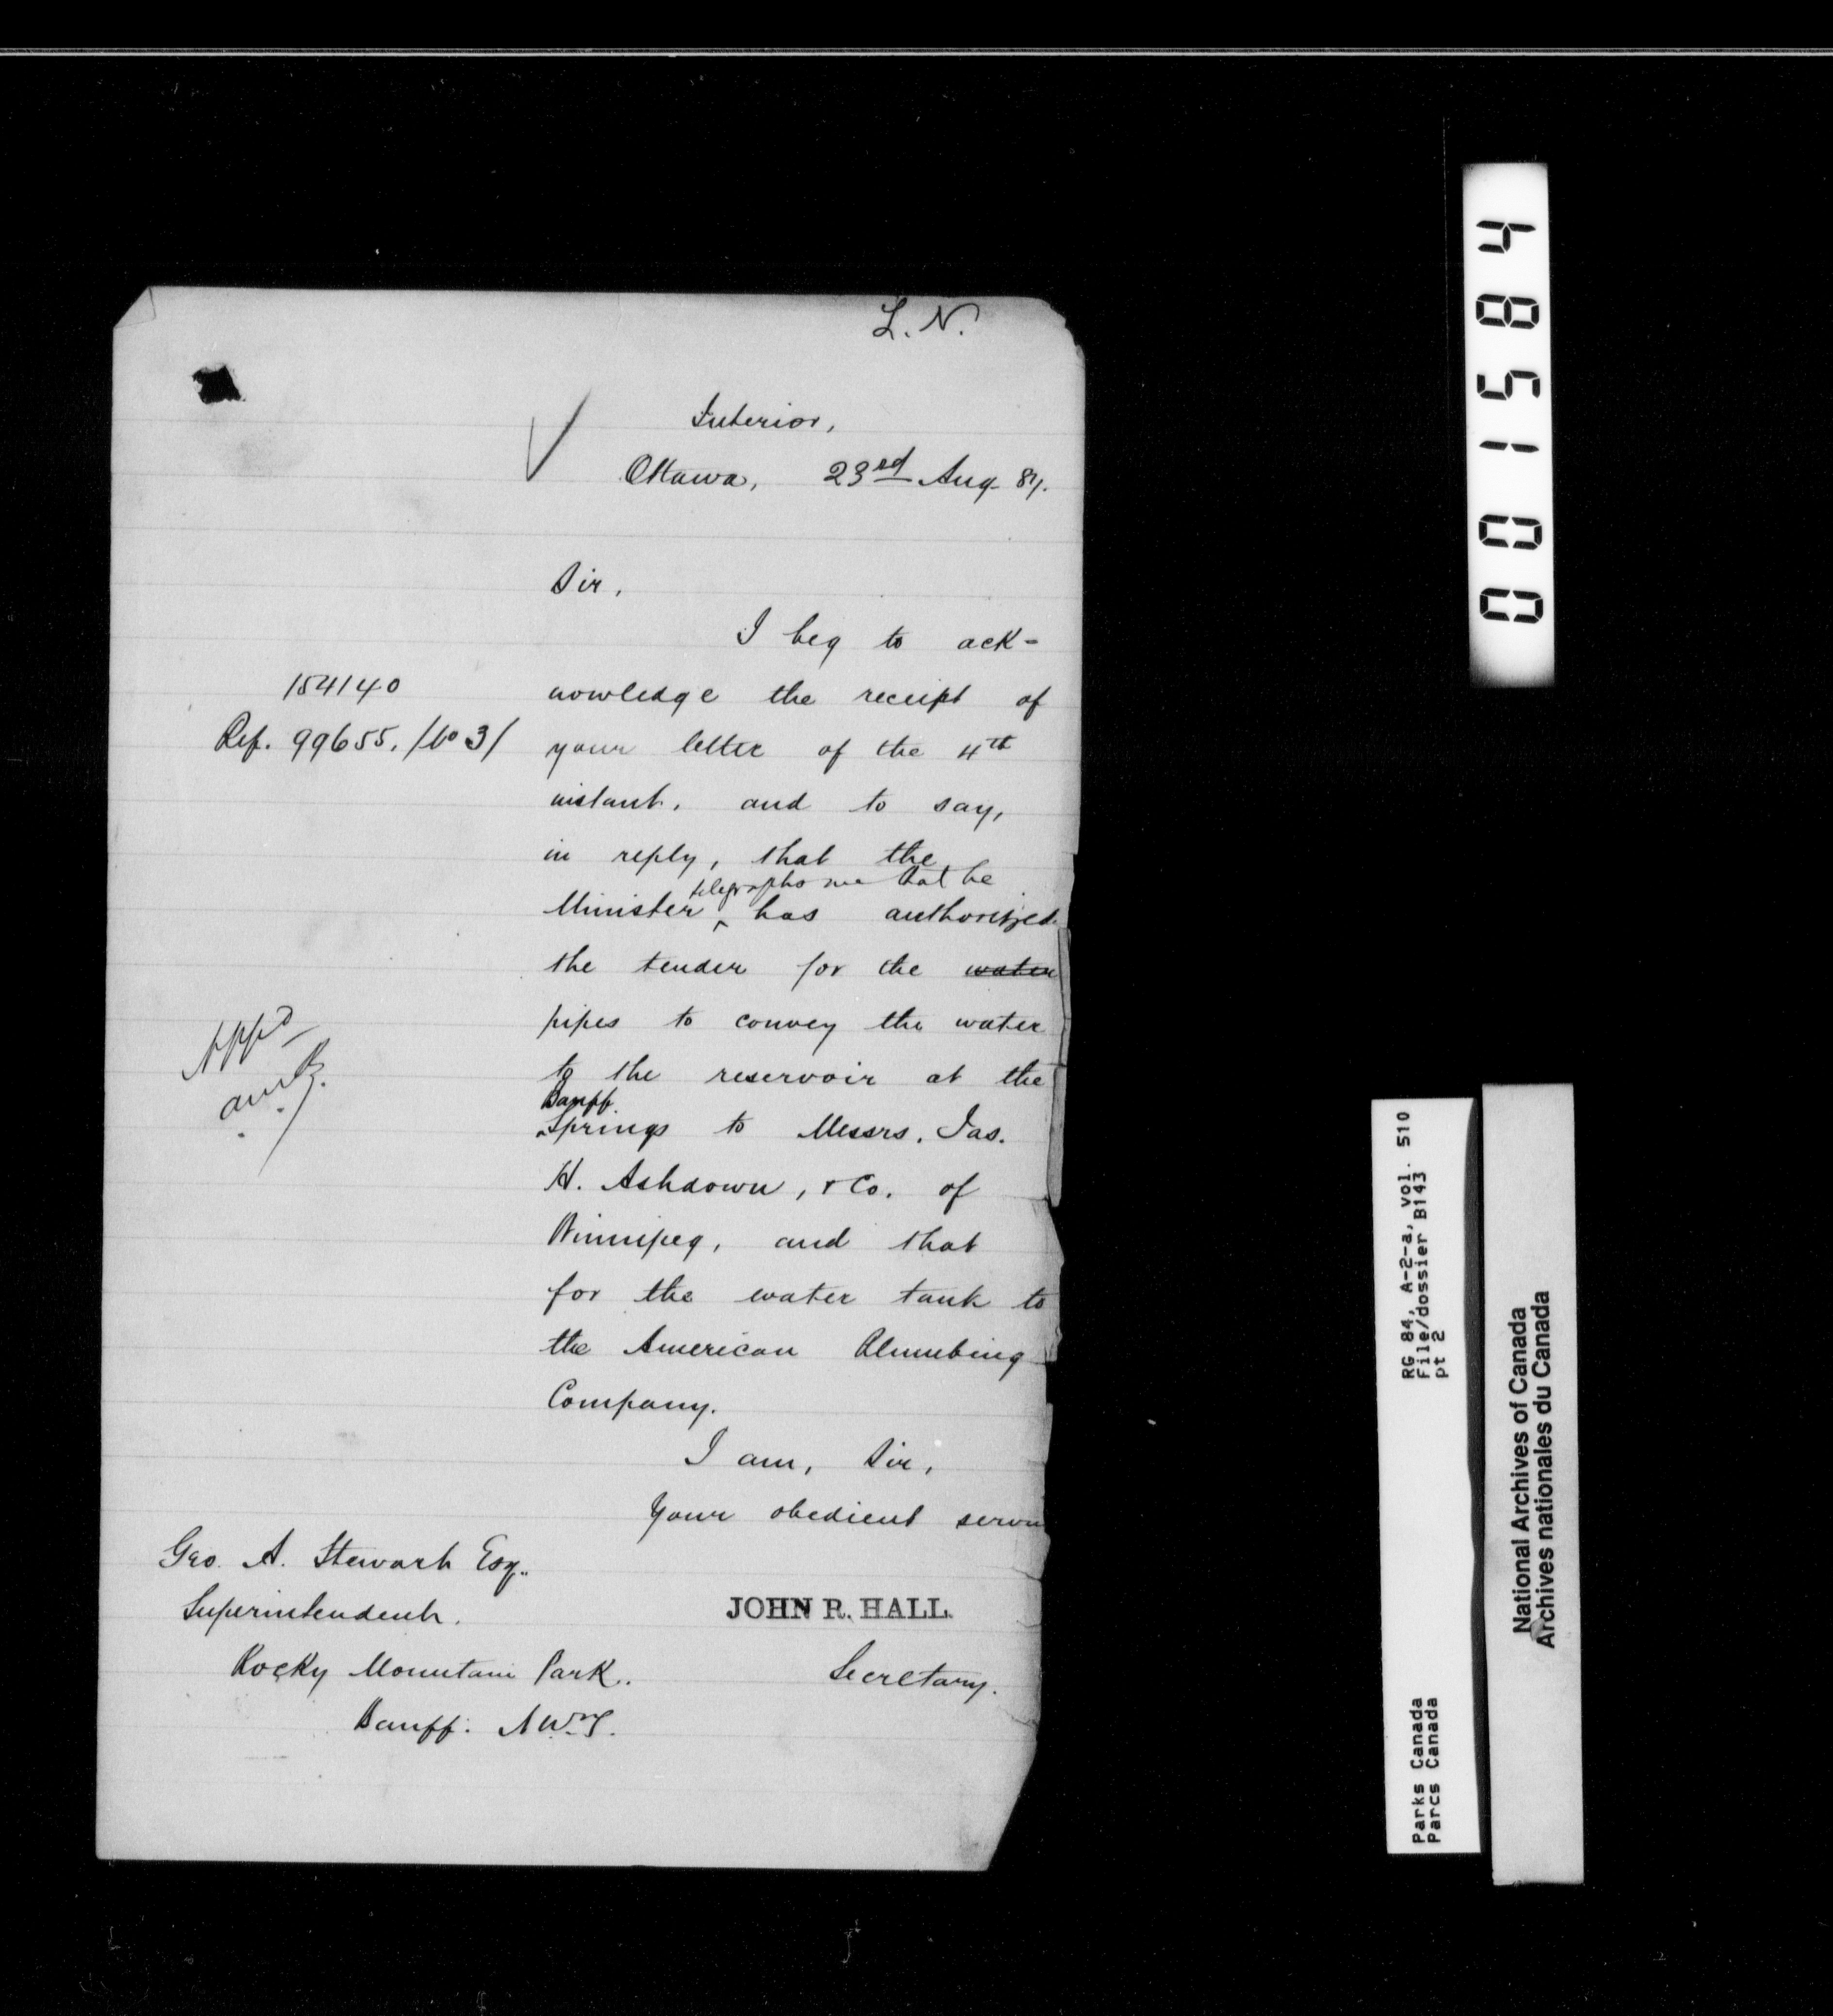 L. N.
Interior,
Ottawa, 23rd Aug 87.
Sir,
I beg to ack-
154140
nowledge the receipt of
Ref. 99655. /No 3/
your letter of the 4th
instant, and to say,
in reply, that the
telegraphs me that he
Minister ^ has authorized
the tender for the water
pipes to convey the water
Appd
to the reservoir at the
Banff
Springs to Messrs. Jas.
H. Ashdown, & Co. of
Winnipeg, and that
for the water tank to
the American Plumbing
Company.
I am, Sir,
Your obedient serv
Geo. A. Stewart Esq.
Superintendent.
JOHN R. HALL.
Rocky Mountain Park.
Secretary.
Banff. N.W.T.
001584
RG 84, A-2-a, vol. 510
File/dossier B143
pt 2
Parks Canada
Parcs Canada
National Archives of Canada
Archives nationales du Canada